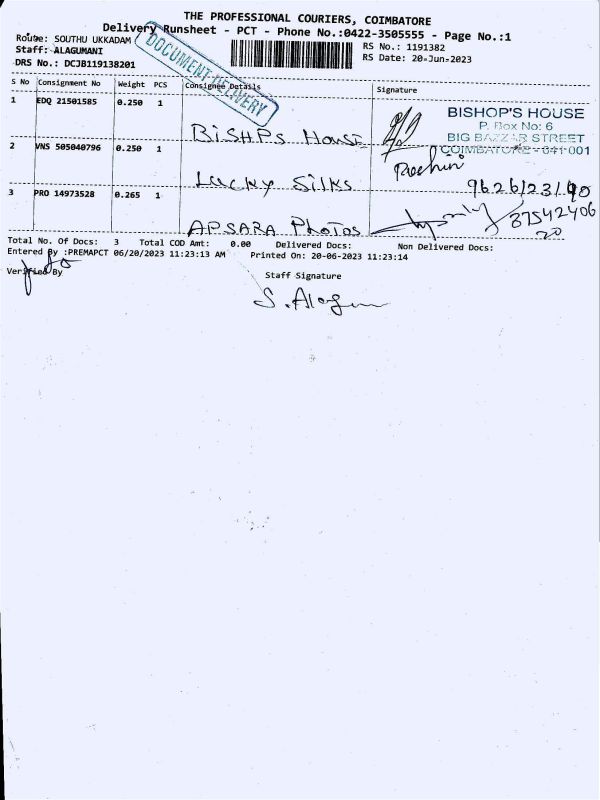 THE PROFESSIONAL COURIERS, COIMBATORE
Delivery Runsheet - PCT - Phone No.:0422-3505555 - Page No.:1
Route: SOUTHU UKKADAM
Staff: ALAGUMANI
DRS No.: DCJB119138201
RS No.: 1191382
RS Date: 20-Jun-2023
DOCUMENT DELIVERY
S No Consignment No Weight PCS Consignee Details Signature
1 EDQ 21501585 0.250 1
BISHOP'S HOUSE
P. Box No: 6
BIG BAZZAR STREET
COIMBATORE - 641 001
BiSHPs House
2 VNS 505040796 0.250 1
Lucky Silks
3 PRO 14973528 0.265 1
APSARA Photos
Total No. Of Docs: 3 Total COD Amt: 0.00 Delivered Docs: Non Delivered Docs:
Entered By :PREMAPCT 06/20/2023 11:23:13 AM Printed On: 20-06-2023 11:23:14
Verified By
Staff Signature
S. Alagu